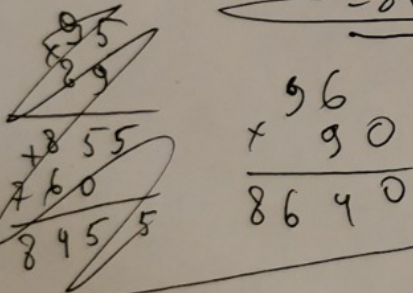 95
× 89
+ 855
760
8455
96
× 90
8640